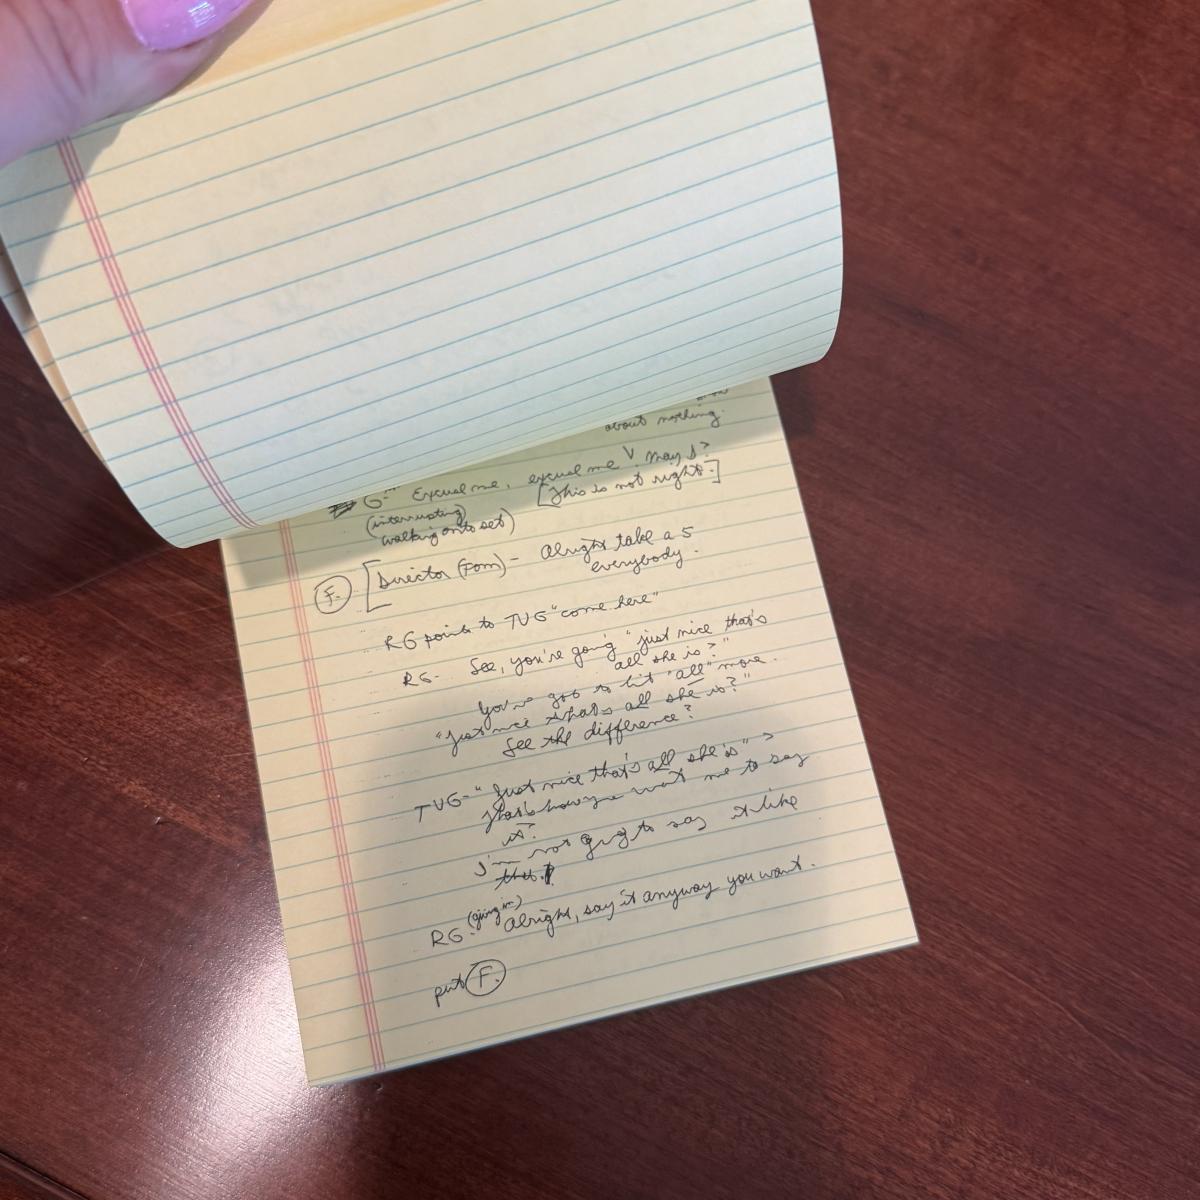 about nothing.
G- Excuse me, excuse me V may I?
(interrupting) [This is not right.]
walking onto set)
F. [Director (Tom) - Alright take a 5
everybody.
RG points to TVG "come here"
RG- See, you're going "just nice that's
all she is?"
You've got to hit "all" more.
"just nice that's all she is?"
See the difference?
TVG- "Just nice that's all she is" >
that's how you want me to say
it?
I'm not going to say it like
that.
(giving in)
RG- Alright, say it anyway you want.
put F.